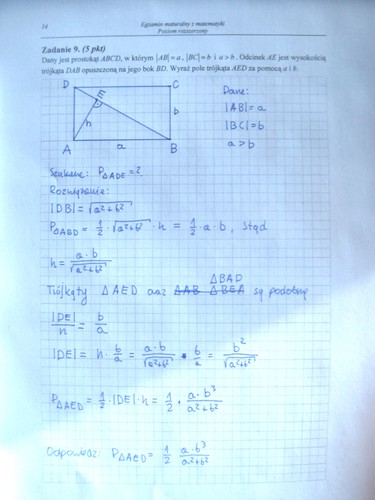 14
Egzamin maturalny z matematyki
Poziom rozszerzony
Zadanie 9. (5 pkt)
Dany jest prostokąt ABCD, w którym |AB| = a, |BC| = b i a > b. Odcinek AE jest wysokością
trójkąta DAB opuszczoną na jego bok BD. Wyraź pole trójkąta AED za pomocą a i b.
D C
E
h b
A a B
Dane:
|AB| = a
|BC| = b
a > b
Szukane: P△ADE = ?
Rozwiązanie:
|DB| = √(a²+b²)
P△ABD = 1/2 · √(a²+b²) · h = 1/2 · a · b, stąd
h = a·b/√(a²+b²)
△BAD
Trójkąty △AED oraz △AB △BEA są podobne
|DE|/h = b/a
|DE| = h · b/a = a·b/√(a²+b²) · b/a = b²/√(a²+b²)
P△AED = 1/2 · |DE| · h = 1/2 · a·b³/(a²+b²)
Odpowiedź: P△AED = 1/2 a·b³/(a²+b²)